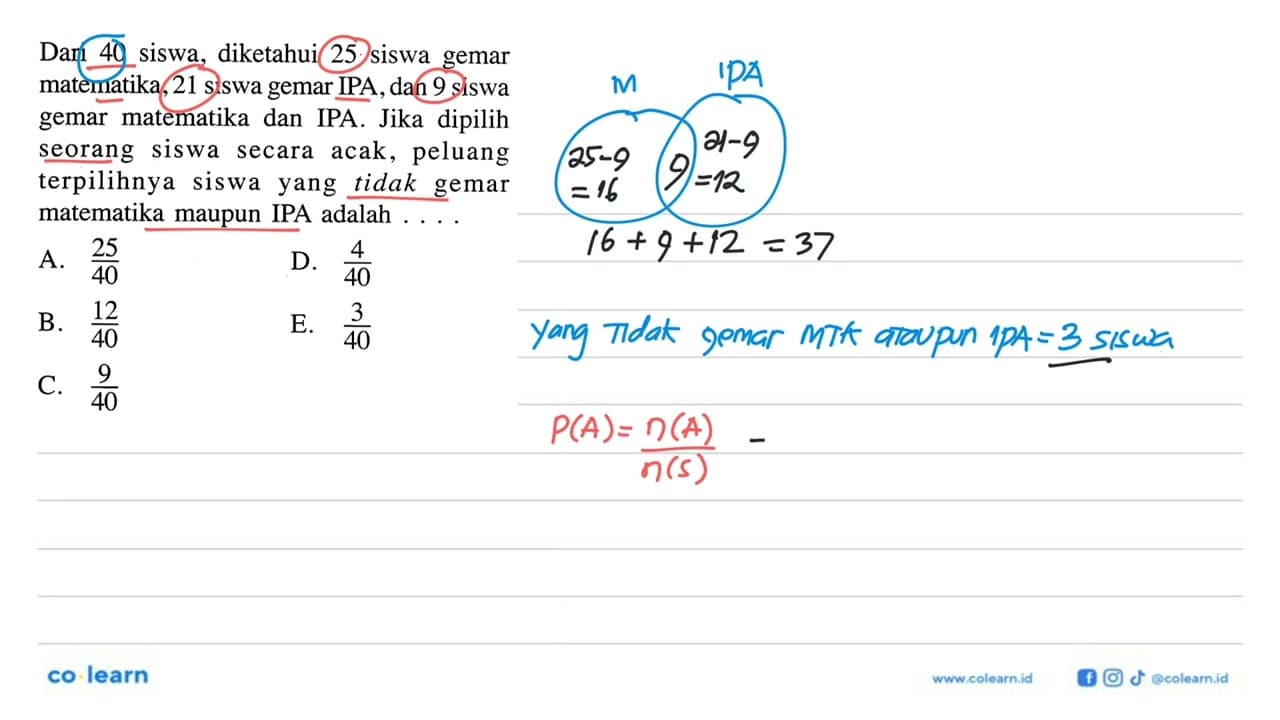 Dari 40 siswa, diketahui 25 siswa gemar
matematika, 21 siswa gemar IPA, dan 9 siswa
gemar matematika dan IPA. Jika dipilih
seorang siswa secara acak, peluang
terpilihnya siswa yang tidak gemar
matematika maupun IPA adalah . . . .
A. 25/40
B. 12/40
C. 9/40
D. 4/40
E. 3/40
M IPA
25-9
= 16
9
21-9
=12
16 + 9 + 12 = 37
Yang Tidak gemar MTK ataupun IPA = 3 siswa
P(A) = n(A)/n(S) =
co learn
www.colearn.id @colearn.id